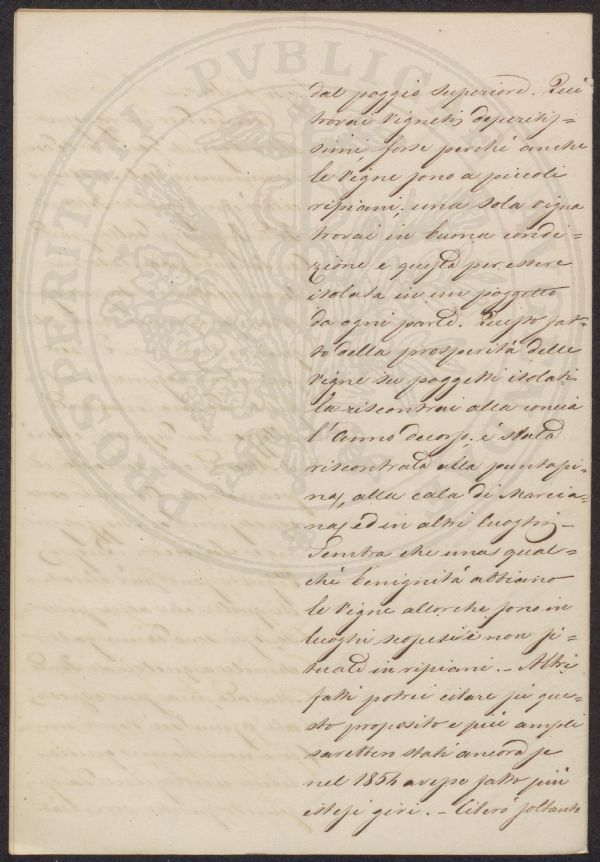 PROSPERITATI PVBLICAE
dal poggio superiore. Quei
trovai Vigneti, deperitis=
simi, forse perché anche
le Vigne sono a piccoli
ripiani; una sola vigna
trovai in buona condi=
zione e questa per essere
isolata in un poggetto
da ogni parte. Questo fat=
to della prosperità delle
Vigne su poggetti isolati,
la riscontrai alla concia
l'Anno decorso. é stata
riscontrata alla puntapi=
na, alla cala di Marcia=
na, ed in altri luoghi. –
Sembra che una qual=
ché benignità abbiano
le Vigne allorche sono in
luoghi scoscesi e non si=
tuate in ripiani. – Altri
fatti potrei citare su que=
sto proposito e più ampli
sarebbero stati ancora se
nel 1854 avessi fatto più
estesi giri. – Citerò soltanto